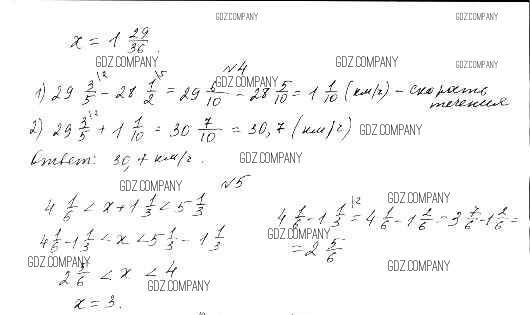 GDZ.COMPANY GDZ.COMPANY
x = 1 29/36.
GDZ.COMPANY №4 GDZ.COMPANY GDZ.COMPANY
GDZ.COMPANY
1) 29 3/5 \2 - 28 1/2 \5 = 29 6/10 - 28 5/10 = 1 1/10 (км/ч) - скорость
течения
2) 29 3/5 \2 + 1 1/10 = 30 7/10 = 30,7 (км/ч) GDZ.COMPANY
Ответ: 30,7 км/ч. GDZ.COMPANY
GDZ.COMPANY №5
4 1/6 < x + 1 1/3 < 5 1/3
GDZ.COMPANY
4 1/6 - 1 1/3 < x < 5 1/3 - 1 1/3
GDZ.COMPANY
2 5/6 < x < 4
GDZ.COMPANY
x = 3.
4 1/6 - 1 1/3 \2 = 4 1/6 - 1 2/6 = 3 7/6 - 1 2/6 =
GDZ.COMPANY
= 2 5/6
GDZ.COMPANY